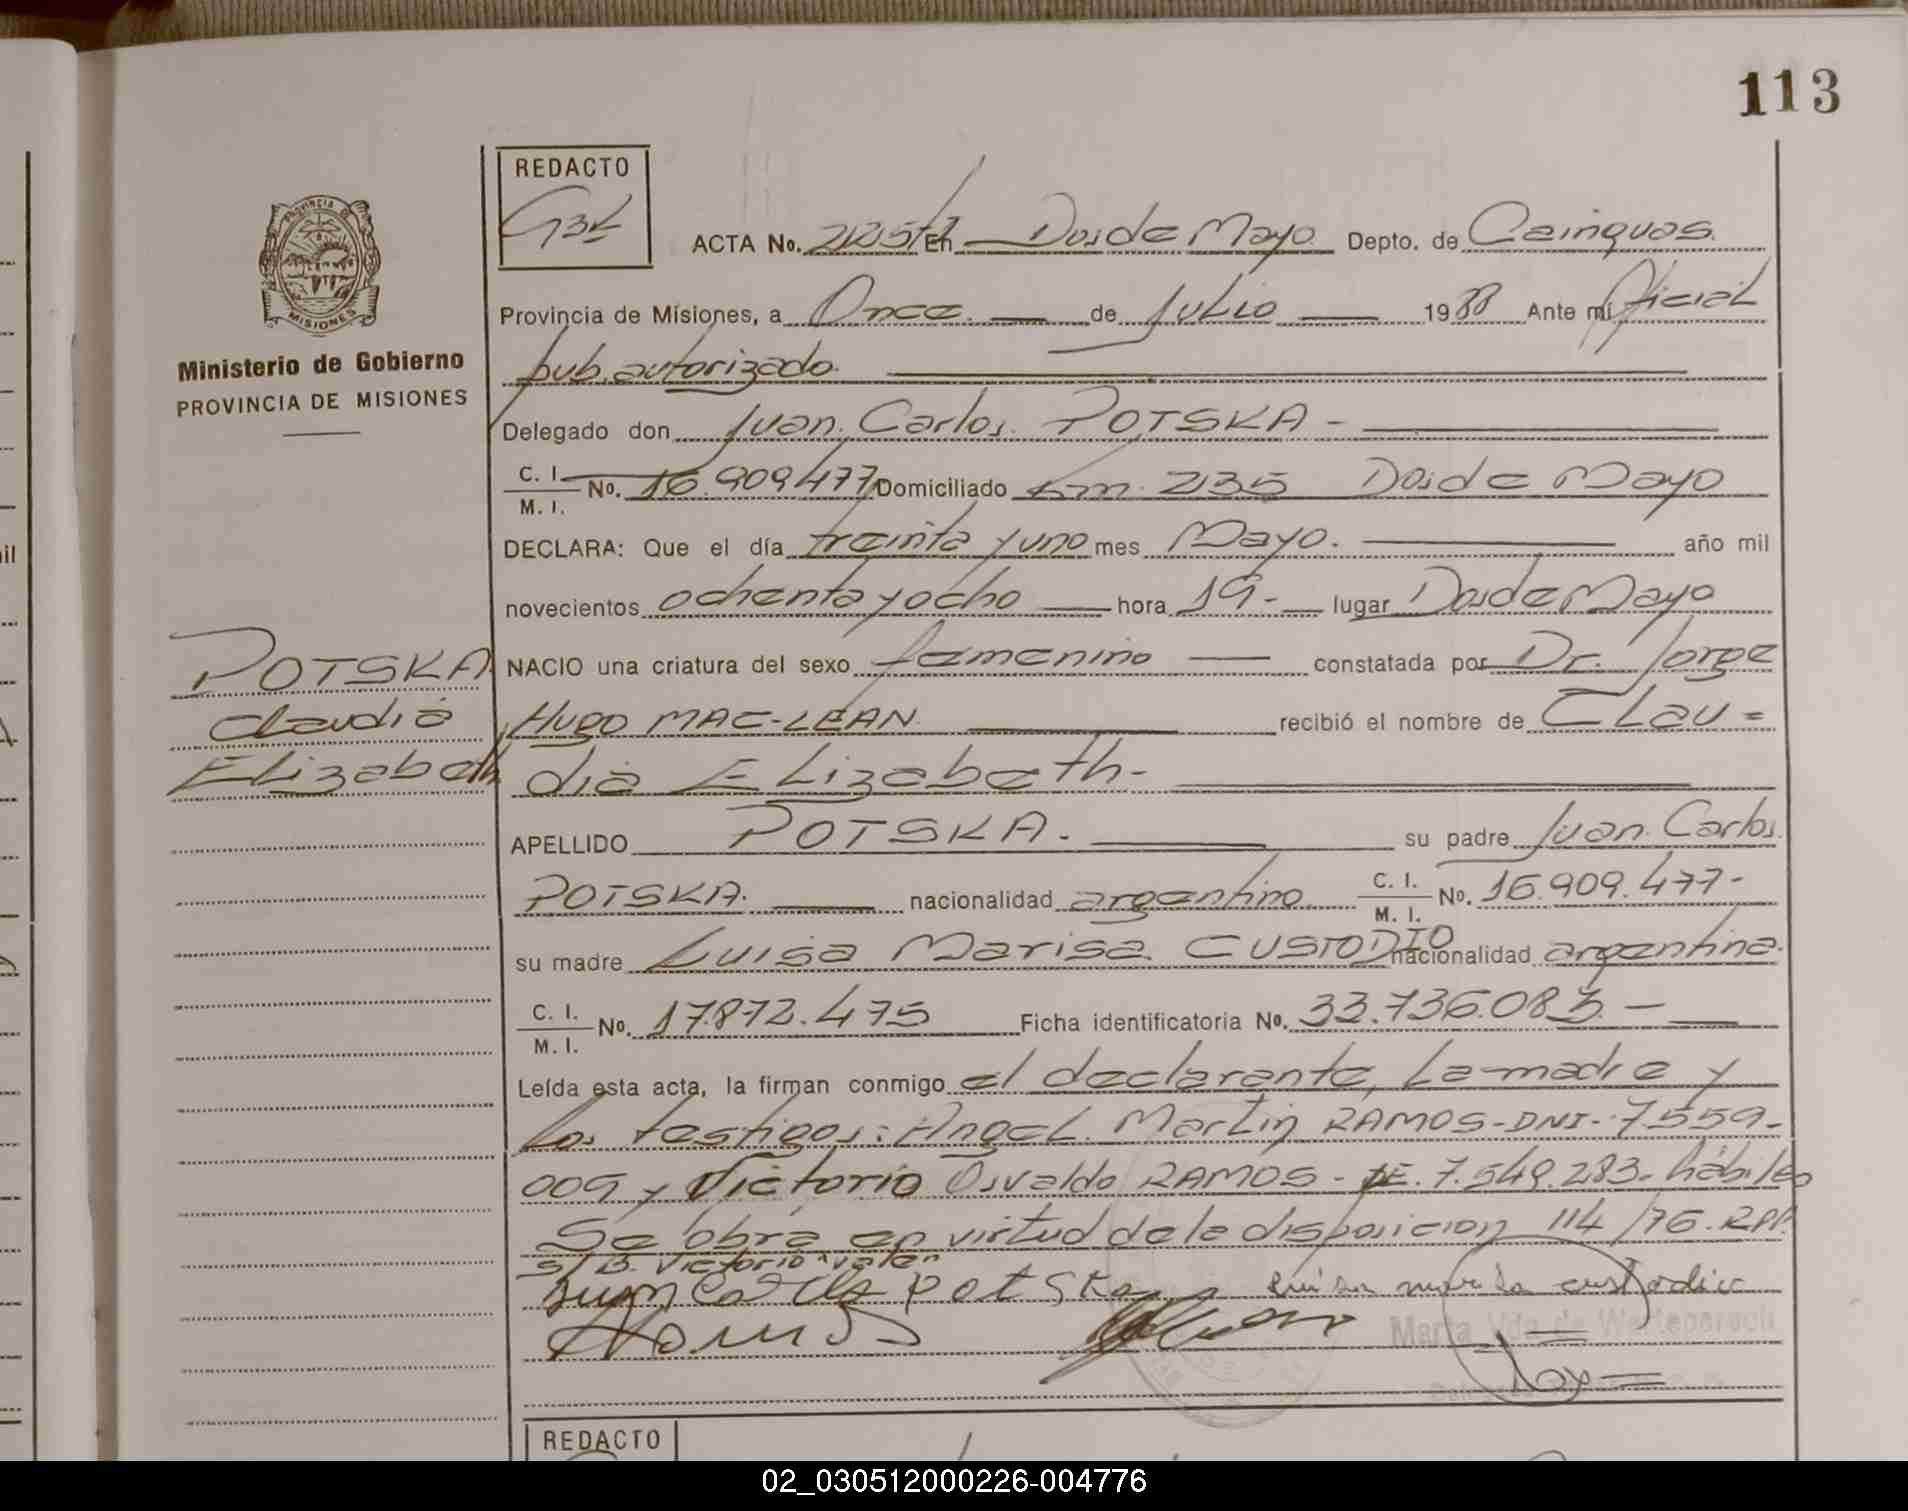 113
REDACTO
PROVINCIA DE
MISIONES
ACTA No. 225 En Dos de Mayo Depto. de Cainguas.
Provincia de Misiones, a Once de Julio 1988 Ante mí Oficial
pub. autorizado.
Ministerio de Gobierno
PROVINCIA DE MISIONES
Delegado don Juan Carlos POTSKA -
C. I. M. I. No. 16.909.477 Domiciliado Km. 235 Dos de Mayo
DECLARA: Que el día treinta y uno mes Mayo. año mil
novecientos ochenta y ocho hora 19.- lugar Dos de Mayo
POTSKA
Claudia
Elizabeth
NACIO una criatura del sexo femenino constatada por Dr. Jorge
Hugo MAC-LEAN recibió el nombre de CLau=
dia Elizabeth-
APELLIDO POTSKA. su padre Juan Carlos
POTSKA. nacionalidad argentino C. I. M. I. No. 16.909.477-
su madre Luisa Marisa CUSTODIO nacionalidad argentina.
C. I. M. I. No. 17.872.475 Ficha identificatoria No. 33.736.083.-
Leída esta acta, la firman conmigo el declarante, La madre y
los testigos: Angel Martin RAMOS-DNI-7.559-
009 y Victorio Osvaldo RAMOS - LE. 7.549.283- hábiles
Se obra en virtud de la disposicion 114/76. RPP.
s/B. Victorio "vale"
Juan Carlos Potska Luisa marisa custodio
Ramos
Marta Vda de
REDACTO
02_030512000226-004776